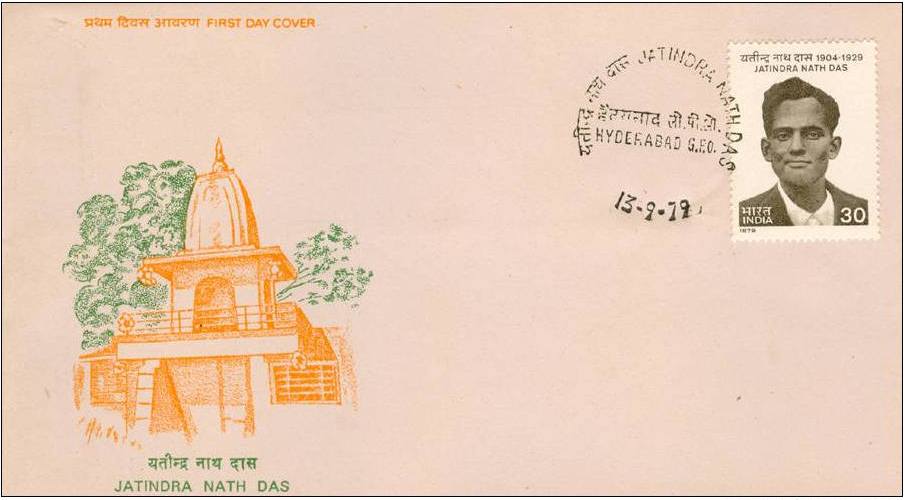 प्रथम दिवस आवरण FIRST DAY COVER
यतीन्द्र नाथ दास JATINDRA NATH DAS
हैदराबाद जी.पी.ओ.
HYDERABAD G.P.O.
13-9-79
यतीन्द्र नाथ दास 1904-1929
JATINDRA NATH DAS
भारत
INDIA
30
1979
यतीन्द्र नाथ दास
JATINDRA NATH DAS